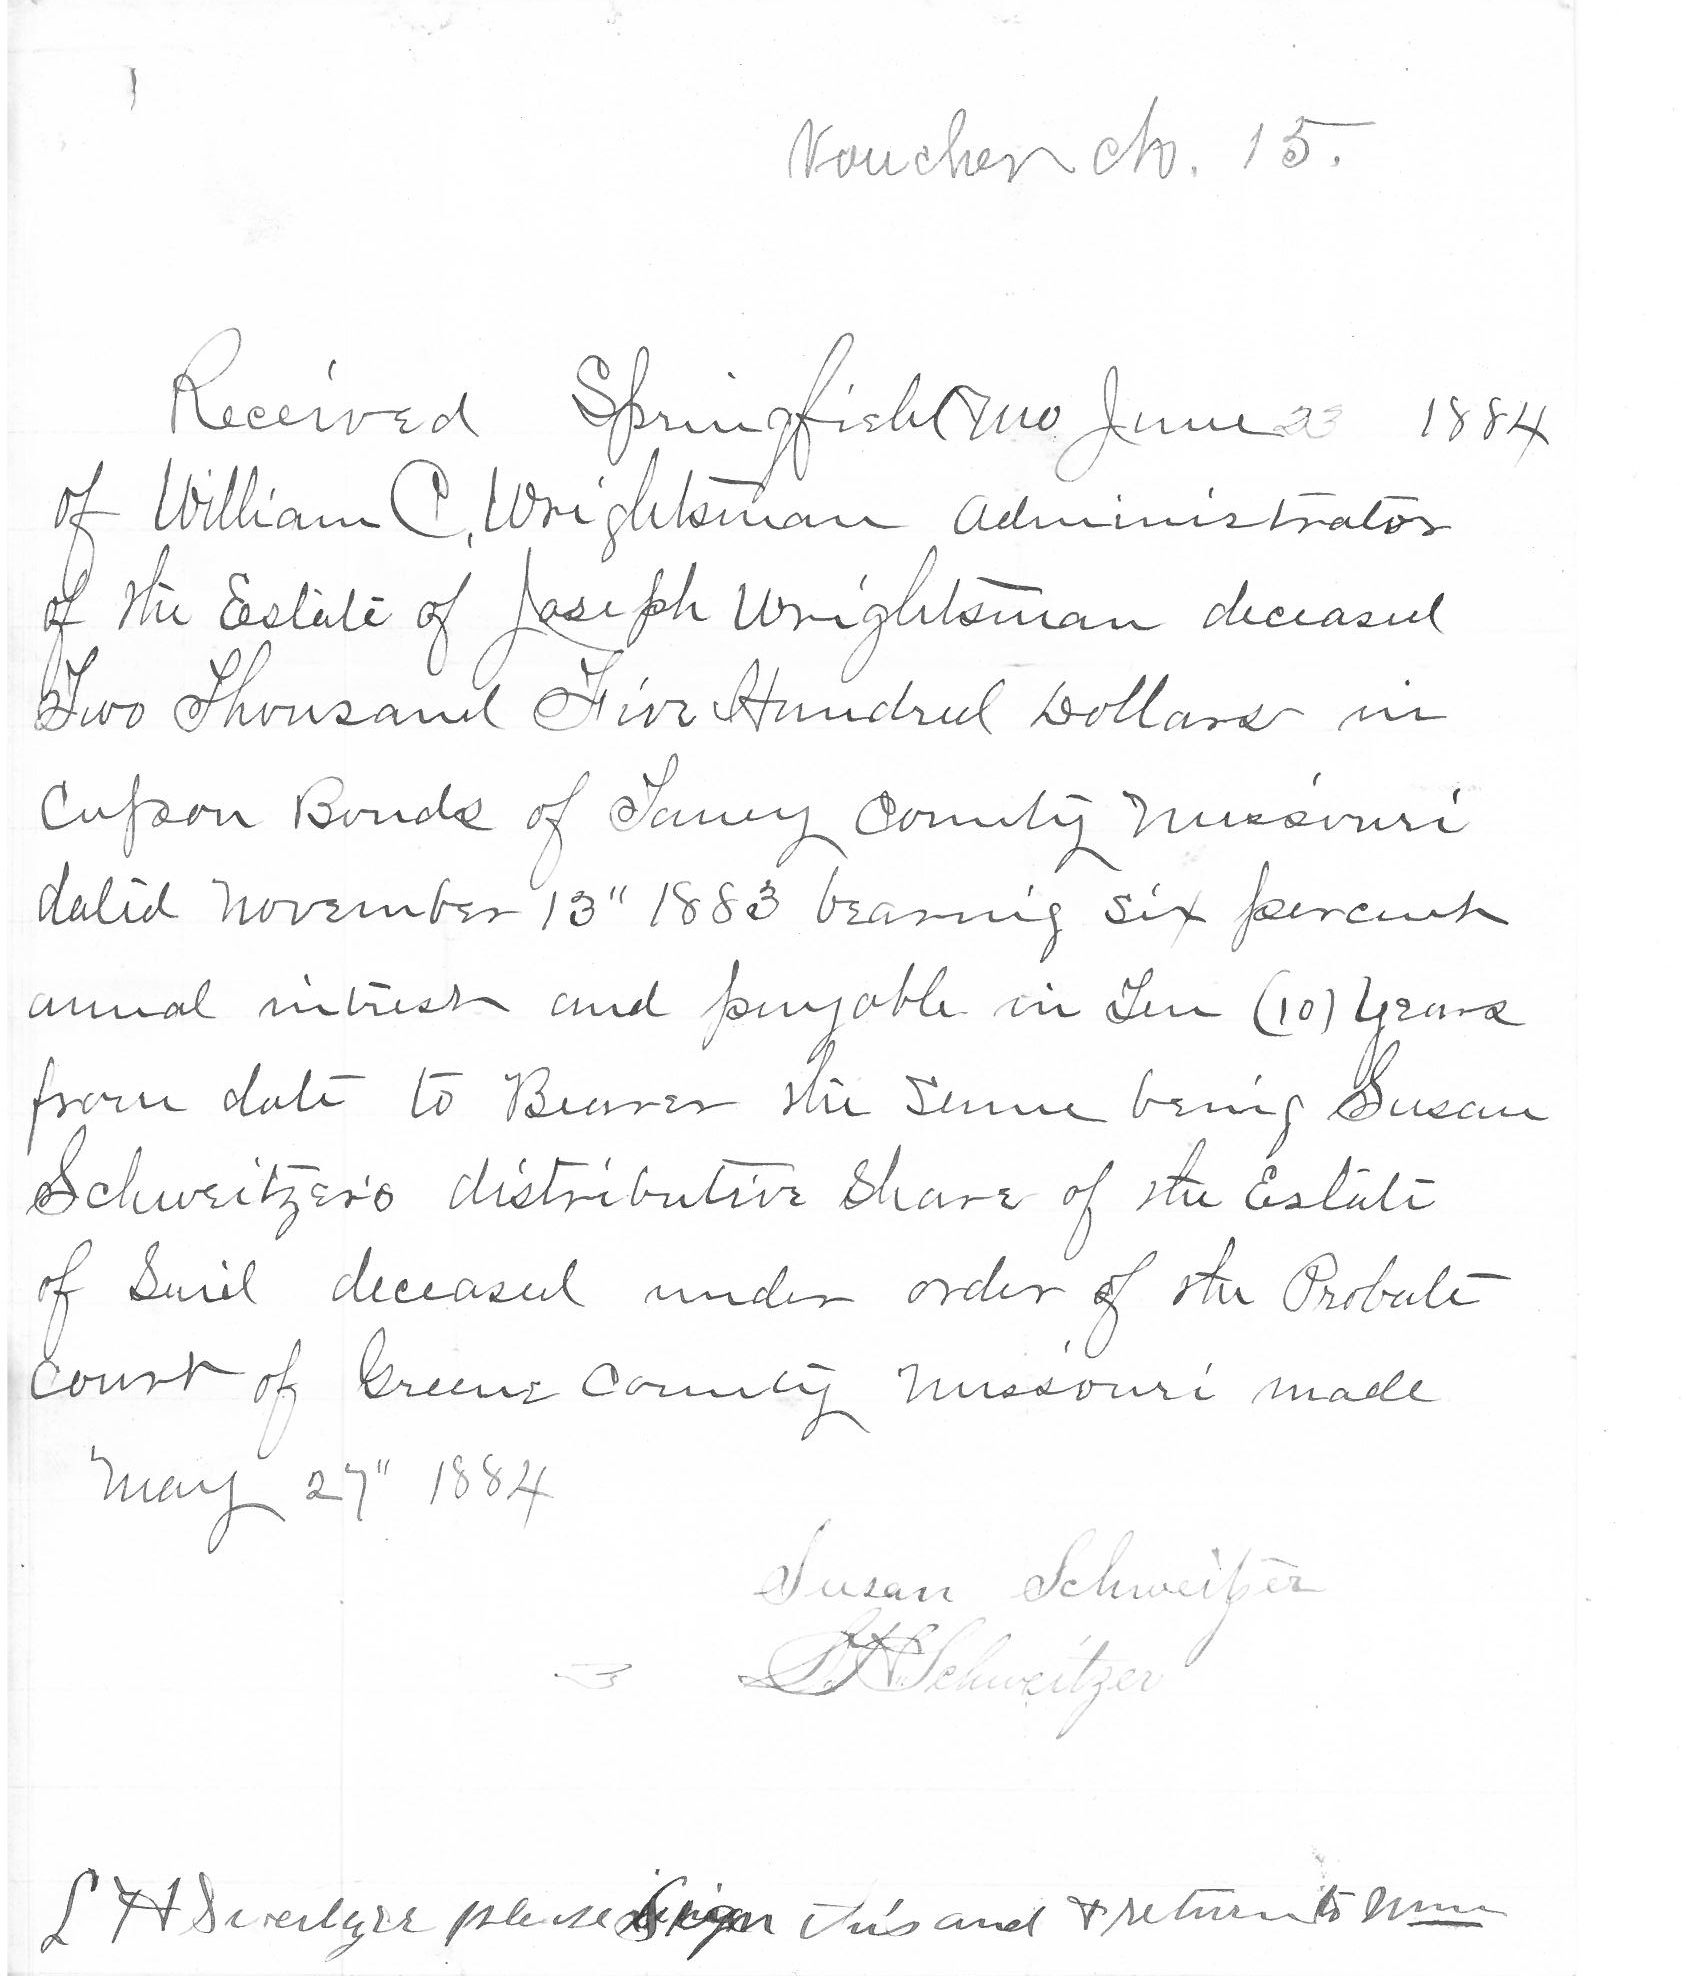 Voucher No. 15.
Received Springfield Mo June 23 1884
of William C. Wrightsman Administrator
of the Estate of Joseph Wrightsman deceased
Two Thousand Five Hundred Dollars in
Cupson Bonds of Taney County Missouri
dated November 13" 1883 bearing six percent
annual intrest and payable in Ten (10) Years
from date to Bearer the same being Susan
Schweitzer's distributive Share of the Estate
of Said deceased under order of the Probate
court of Greene County Missouri made
May 27" 1884
Susan Schweitzer
L. H. Schweitzer
L H please Sign this and & return to